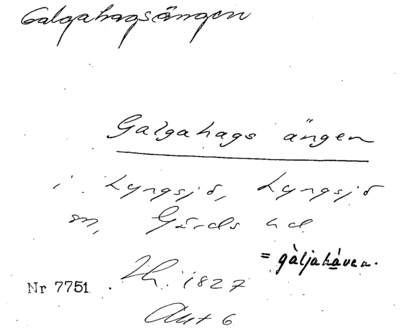 Galgahagsängen
Galgahags ängen
i Lyngsjö, Lyngsjö
sn, Gärds hd
= gàljahàven.
Nr 7751. Th. 1827
Akt 6